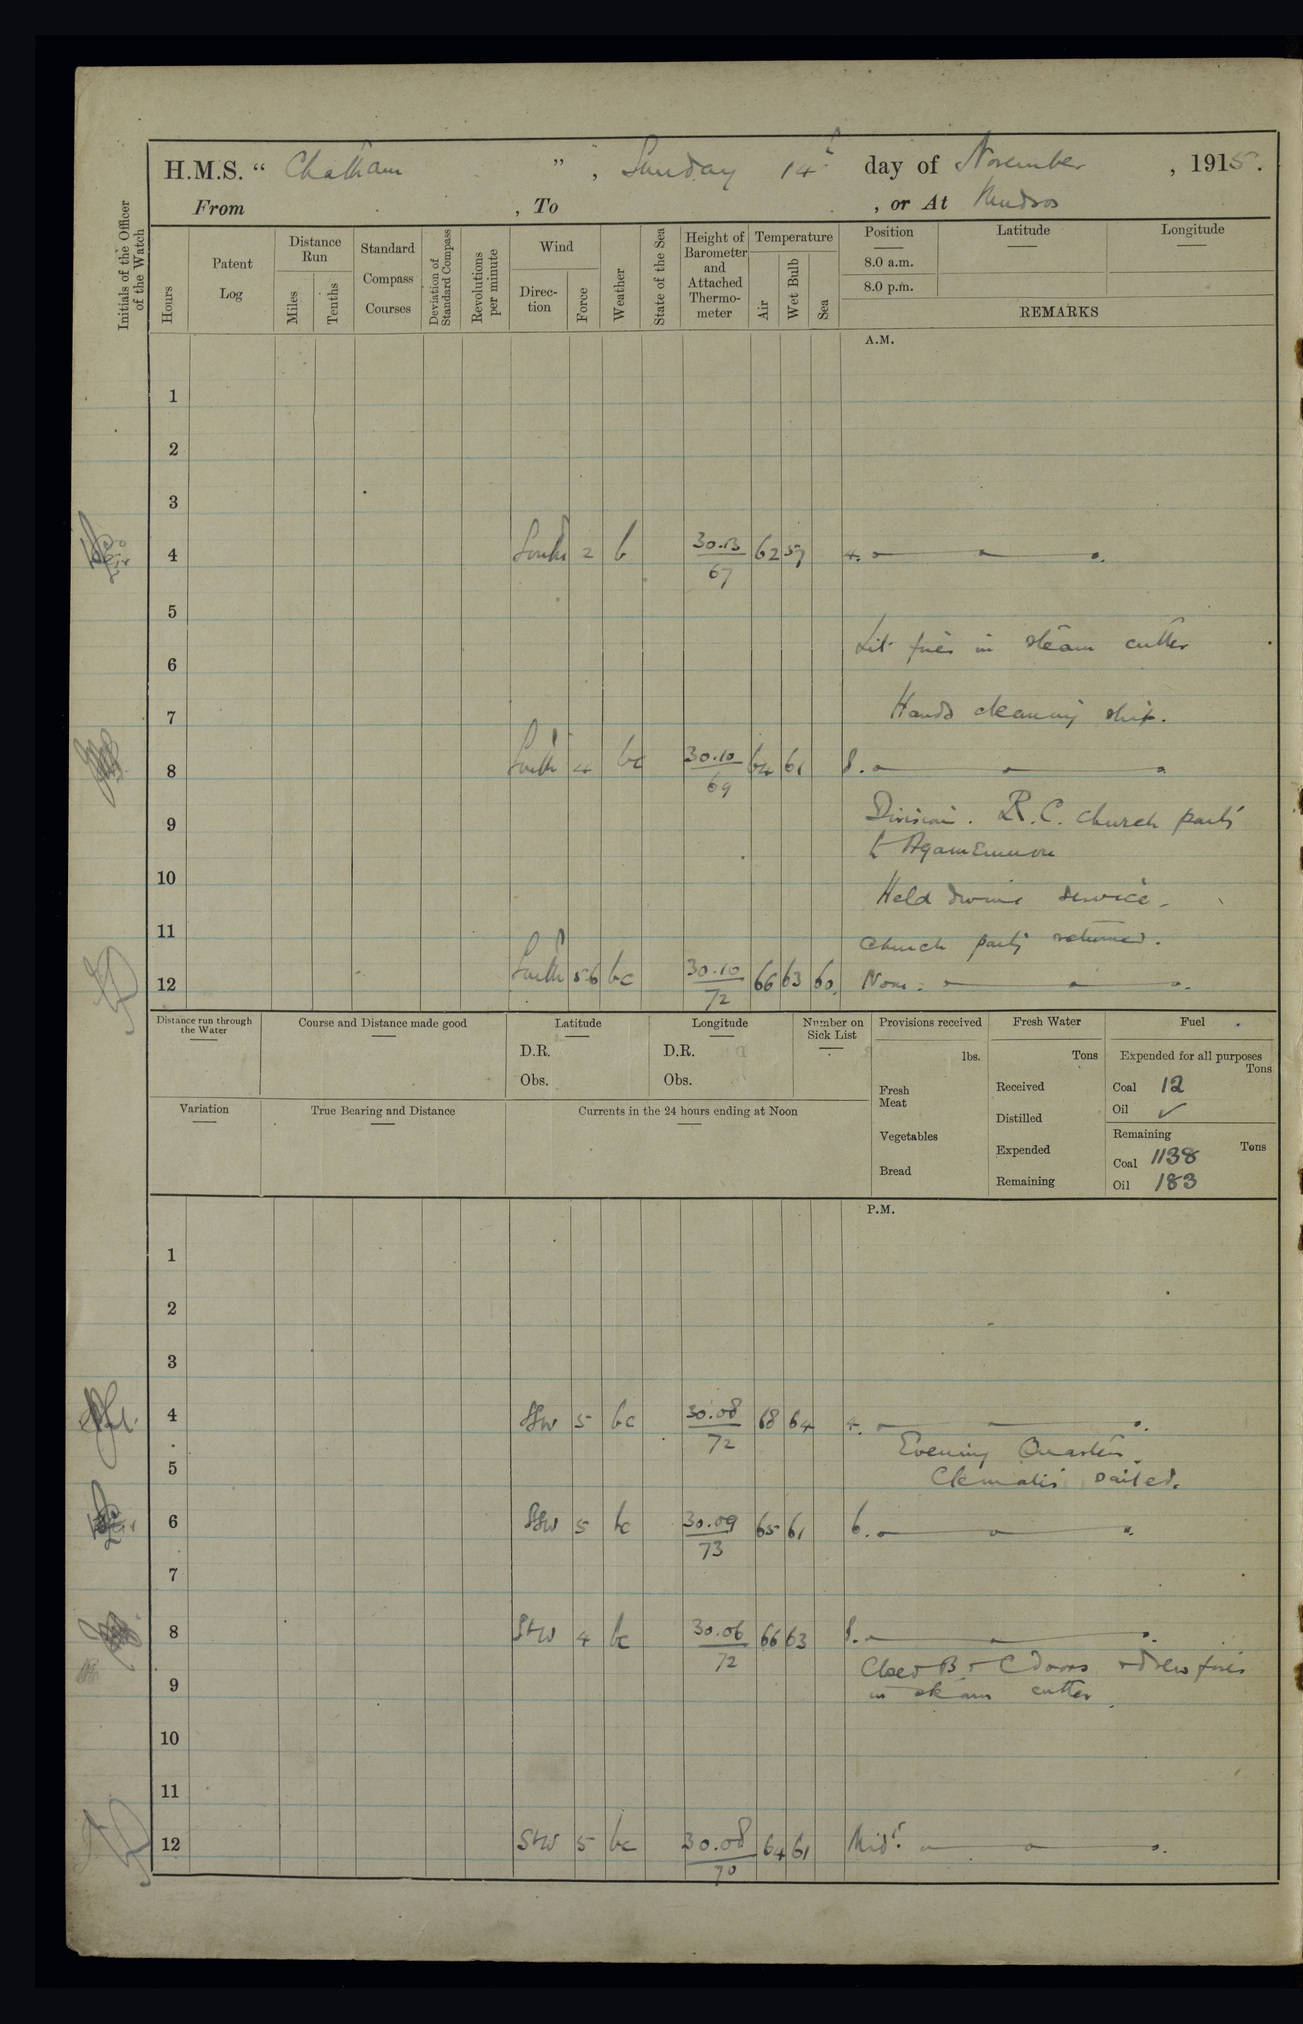 H.M.S. “ Chatham ”, Sunday 14th day of November, 1915.
From , To , or At Mudros
Initials of the Officer of the Watch
Hours
Patent Log
Distance Run
Miles
Tenths
Standard Compass Courses
Deviation of Standard Compass
Revolutions per minute
Wind
Direction
Force
Weather
State of the Sea
Height of Barometer and Attached Thermometer
Temperature
Air
Wet Bulb
Sea
Position Latitude Longitude
8.0 a.m.
8.0 p.m.
REMARKS
A.M.
1
2
3
4 South 2 b 30.13/67 62 57 4.
5
Lit fires in steam cutter
6
7 Hands cleaning ship.
8 South 4 bc 30.10/69 64 61 8.
9 Division. R.C. church party
to Agamemnon
10 Held divine service.
11 Church party returned.
12 South 5-6 bc 30.10/72 66 63 60 Noon.
Distance run through the Water
Course and Distance made good
Latitude
D.R.
Obs.
Longitude
D.R.
Obs.
Number on Sick List
Provisions received
lbs.
Fresh Meat
Vegetables
Bread
Fresh Water
Tons
Received
Distilled
Expended
Remaining
Fuel
Expended for all purposes
Tons
Coal 12
Oil ✓
Remaining
Tons
Coal 1138
Oil 183
Variation
True Bearing and Distance
Currents in the 24 hours ending at Noon
P.M.
1
2
3
4 SSW 5 bc 30.08/72 68 64 4.
Evening Quarters.
5 Clematis sailed.
6 SSW 5 bc 30.09/73 65 61 6.
7
8 S+W 4 bc 30.06/72 66 63 8.
Closed B + C doors + drew fires
9 in steam cutter
10
11
12 S+W 5 bc 30.08/70 64 61 Midt.